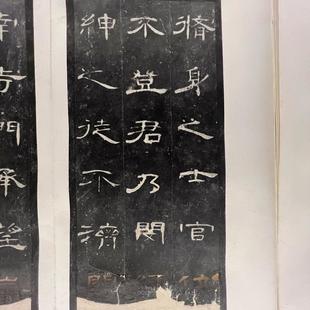 脩身之士官
不登君乃閔
紳之徒不濟
南寺門承望